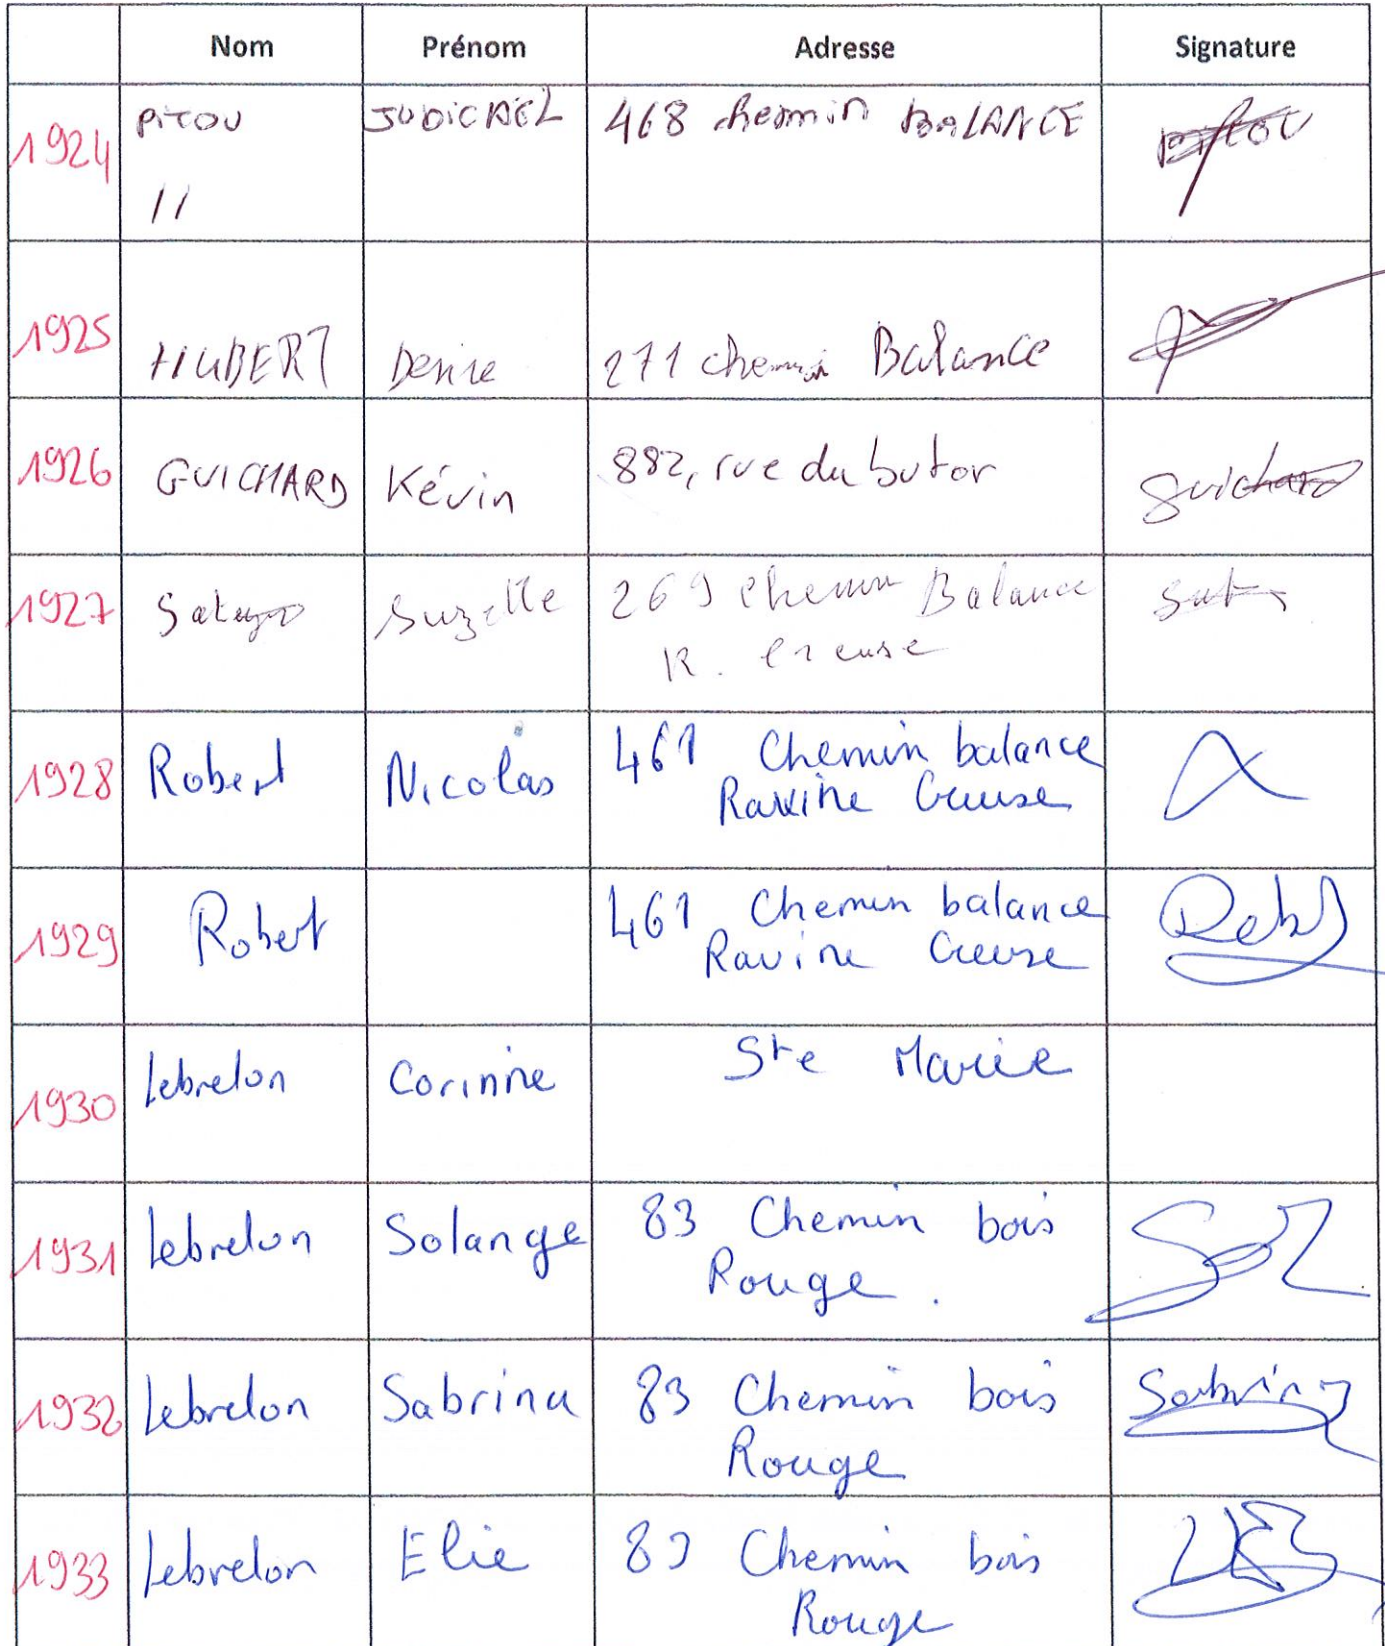 Nom Prénom Adresse Signature
1924 PITOU JUDICAËL 468 chemin BALANCE PITOU
11
1925 HUBERT Denise 271 chemin Balance
1926 GUICHARD Kévin 882, rue du butor guichard
1927 Suzelle 269 Chemin Balance
R. Creuse
1928 Robert Nicolas 461 Chemin balance
Ravine Creuse
1929 Robert 461 Chemin balance
Ravine Creuse
1930 Lebreton Corinne Ste Marie
1931 Lebreton Solange 83 Chemin bois
Rouge.
1932 Lebreton Sabrina 83 Chemin bois Sabrina
Rouge
1933 Lebreton Elie 83 Chemin bois
Rouge